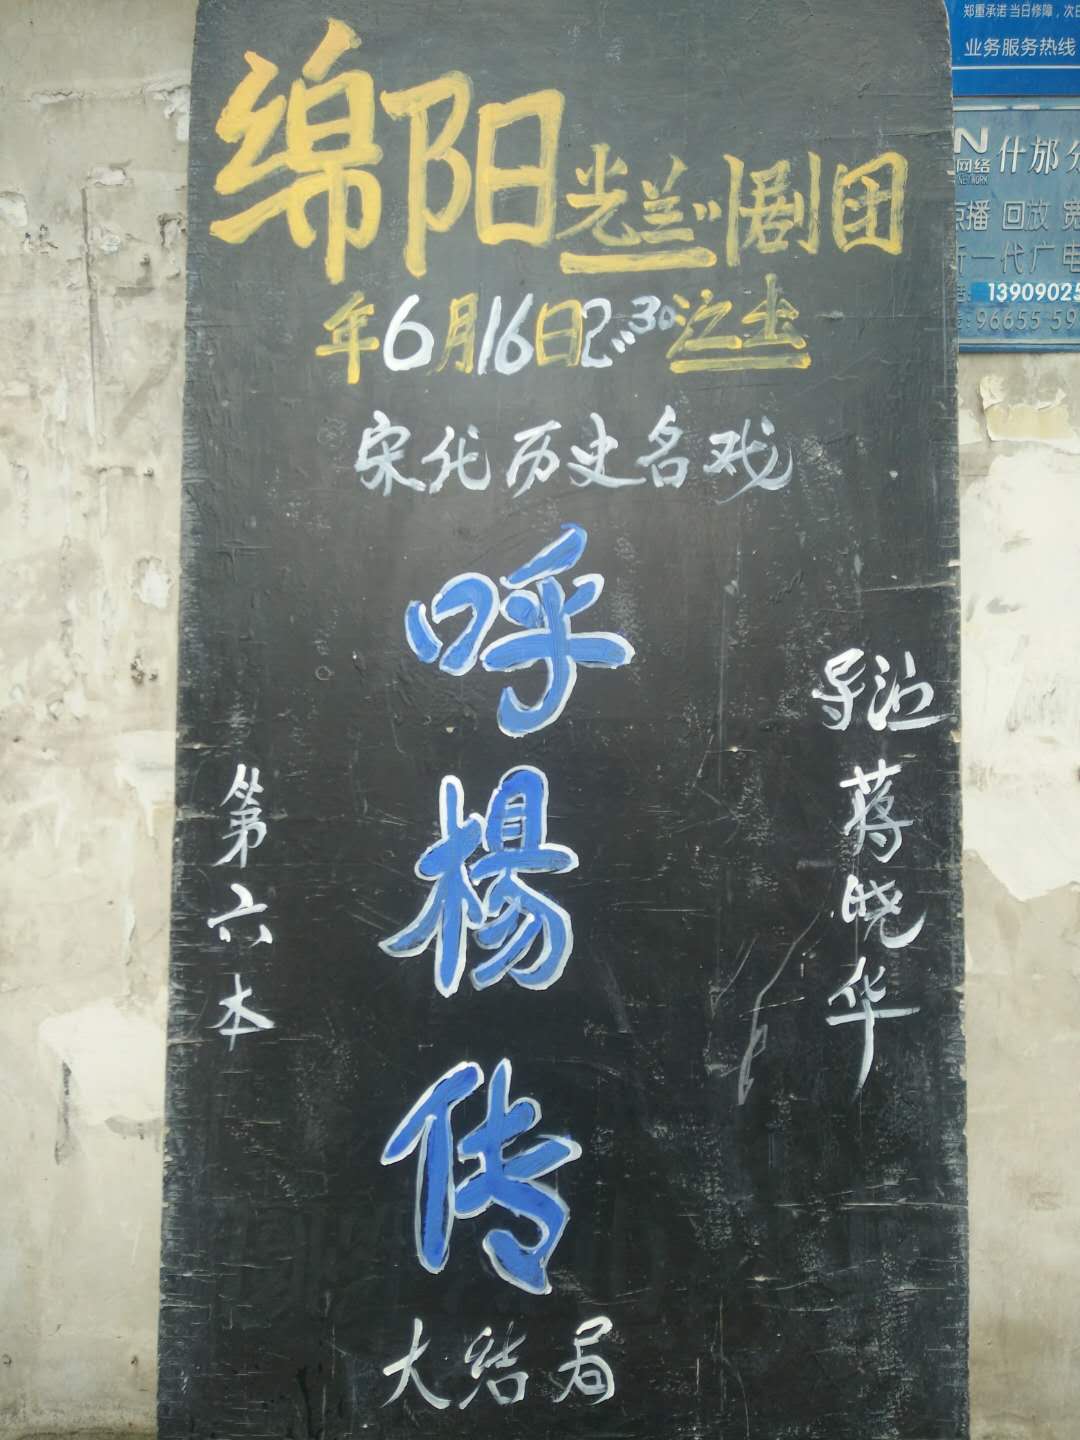 绵阳光兰川剧团
年6月16日2:30演出
宋代历史名戏
呼楊传
导演 蒋晓华
第六本
大结局
郑重承诺 当日修障，次日
业务服务热线
N
网络 什邡
NETWORK
点播 回放 宽
新一代广电
13909025
96655 59